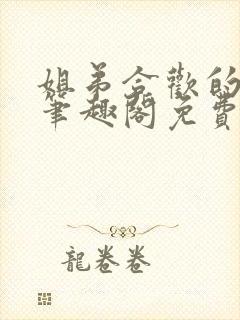 姐弟合歡的
筆趣閣免費
龍卷卷